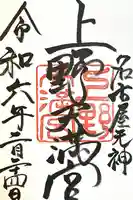 名古屋天神
上野天満宮
令和六年二月日